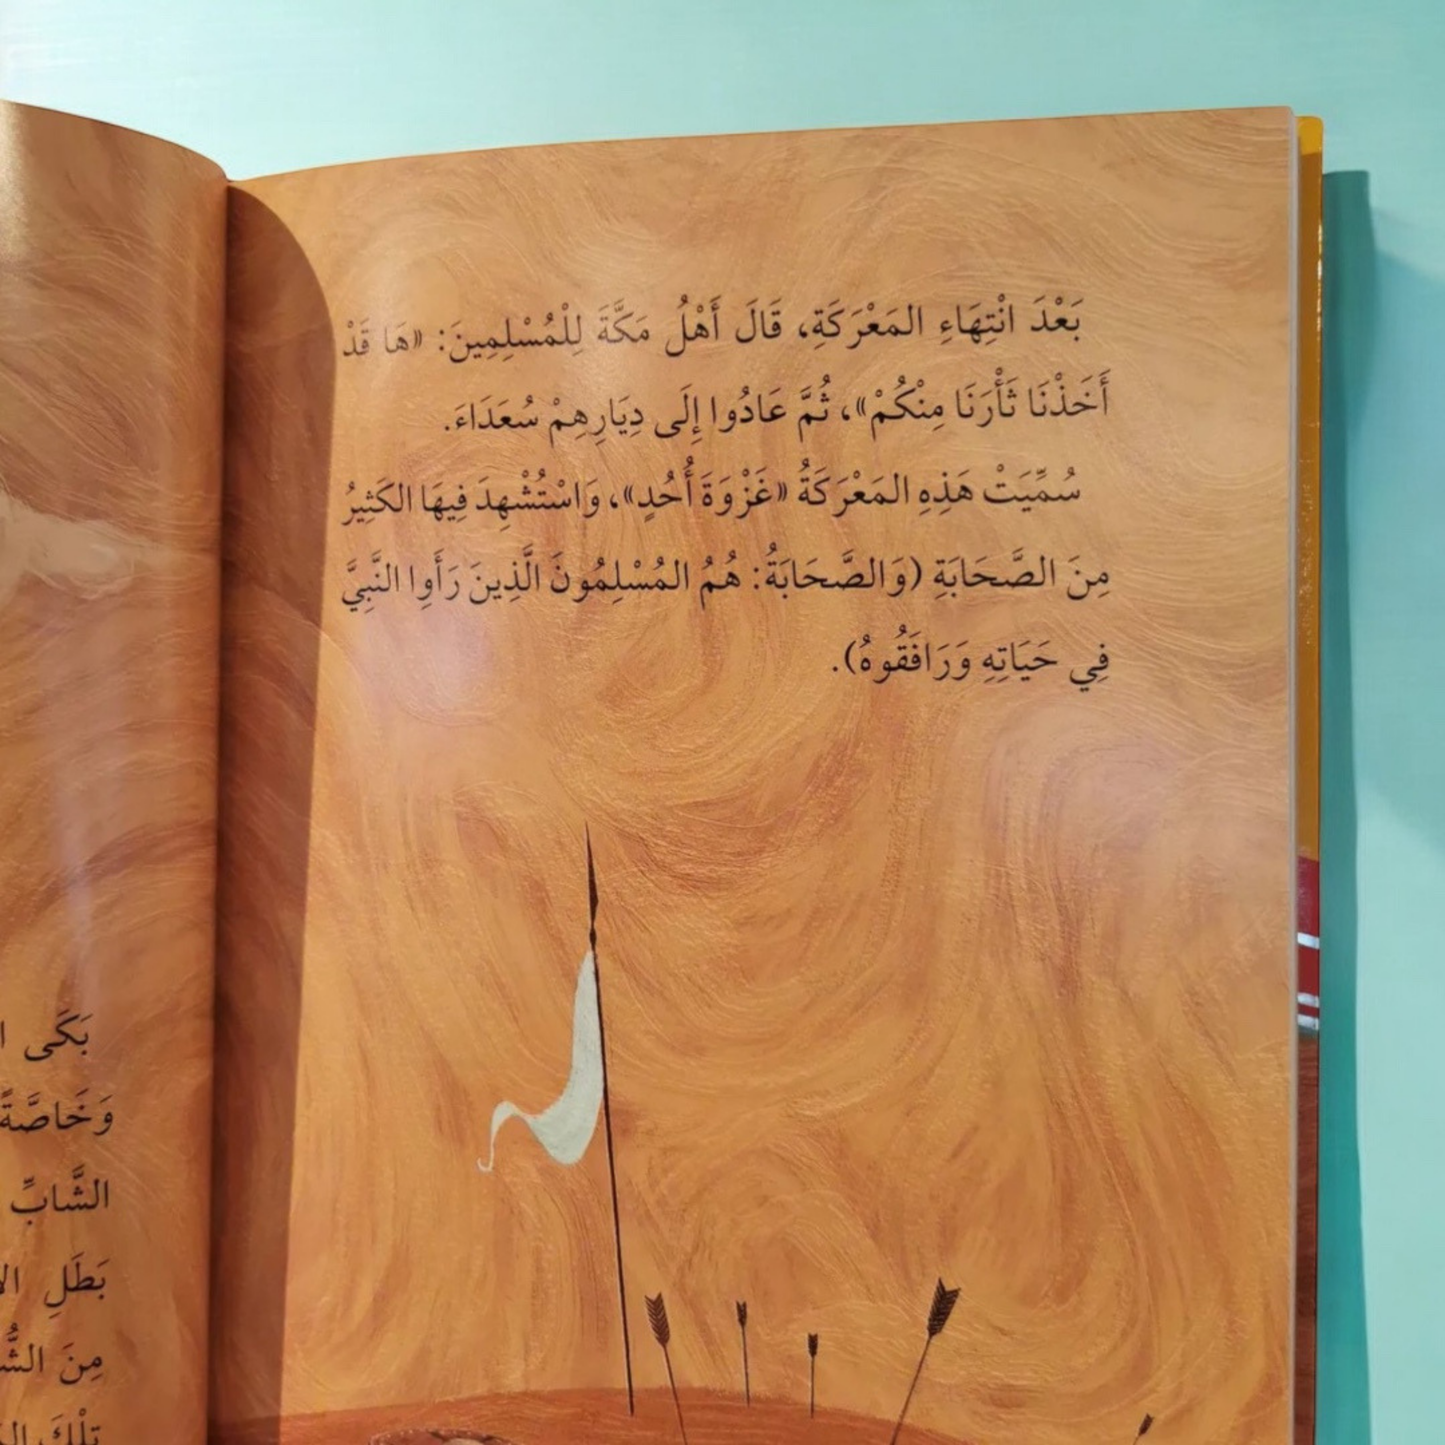 بَعْدَ انْتِهَاءِ المَعْرَكَةِ، قَالَ أَهْلُ مَكَّةَ لِلْمُسْلِمِينَ: «هَا قَدْ
أَخَذْنَا ثَأْرَنَا مِنْكُمْ»، ثُمَّ عَادُوا إِلَى دِيَارِهِمْ سُعَدَاءَ.
سُمِّيَتْ هَذِهِ المَعْرَكَةُ «غَزْوَةَ أُحُدٍ»، وَاسْتُشْهِدَ فِيهَا الكَثِيرُ
مِنَ الصَّحَابَةِ (وَالصَّحَابَةُ: هُمُ المُسْلِمُونَ الَّذِينَ رَأَوِا النَّبِيَّ
فِي حَيَاتِهِ وَرَافَقُوهُ).
بَكَى
وَخَاصَّةً
الشَّابِّ
بَطَلِ
مِنَ
تِلْكَ